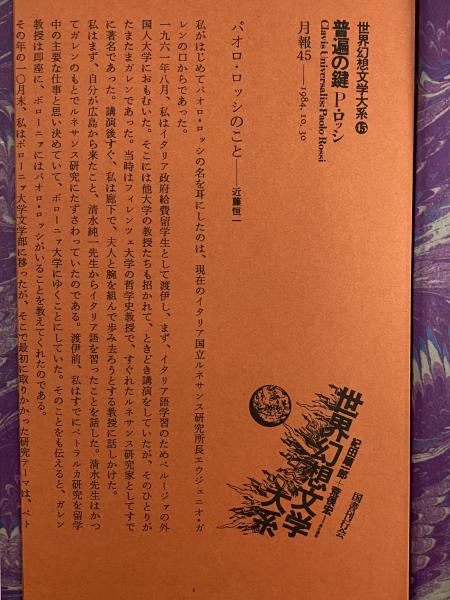 世界幻想文学大系 45
普遍の鍵 P・ロッシ
Clavis Universalis: Paolo Rossi
月報45——1984.10.30
国書刊行会
紀田順一郎
荒俣宏
世界幻想文学大系
パオロ・ロッシのこと——近藤恒一
私がはじめてパオロ・ロッシの名を耳にしたのは、現在のイタリア国立ルネサンス研究所長エウジェニオ・ガ
レンの口からであった。
一九六一年八月、私はイタリア政府給費留学生として渡伊し、まず、イタリア語学習のためペルージァの外
国人大学におもむいた。そこには他大学の教授たちも招かれて、ときどき講演をしていたが、そのひとりが
たまたまガレンであった。当時はフィレンツェ大学の哲学史教授で、すぐれたルネサンス研究家としてすで
に著名であった。講演後すぐ、私は廊下で、夫人と腕を組んで歩み去ろうとする教授に話しかけた。
私はまず、自分が広島から来たこと、清水純一先生からイタリア語を習ったことを話した。清水先生はかつ
てガレンのもとでルネサンス研究にたずさわっていたのである。渡伊前、私はすでにペトラルカ研究を留学
中の主要な仕事と思い決めていて、ボローニァ大学にゆくことにしていた。そのことをも伝えると、ガレン
教授は即座に、ボローニァにはパオロ・ロッシがいることを教えてくれたのである。
その年の一〇月末、私はボローニァ大学文学部に移ったが、そこで最初に取りかかった研究テーマは、ペト
1